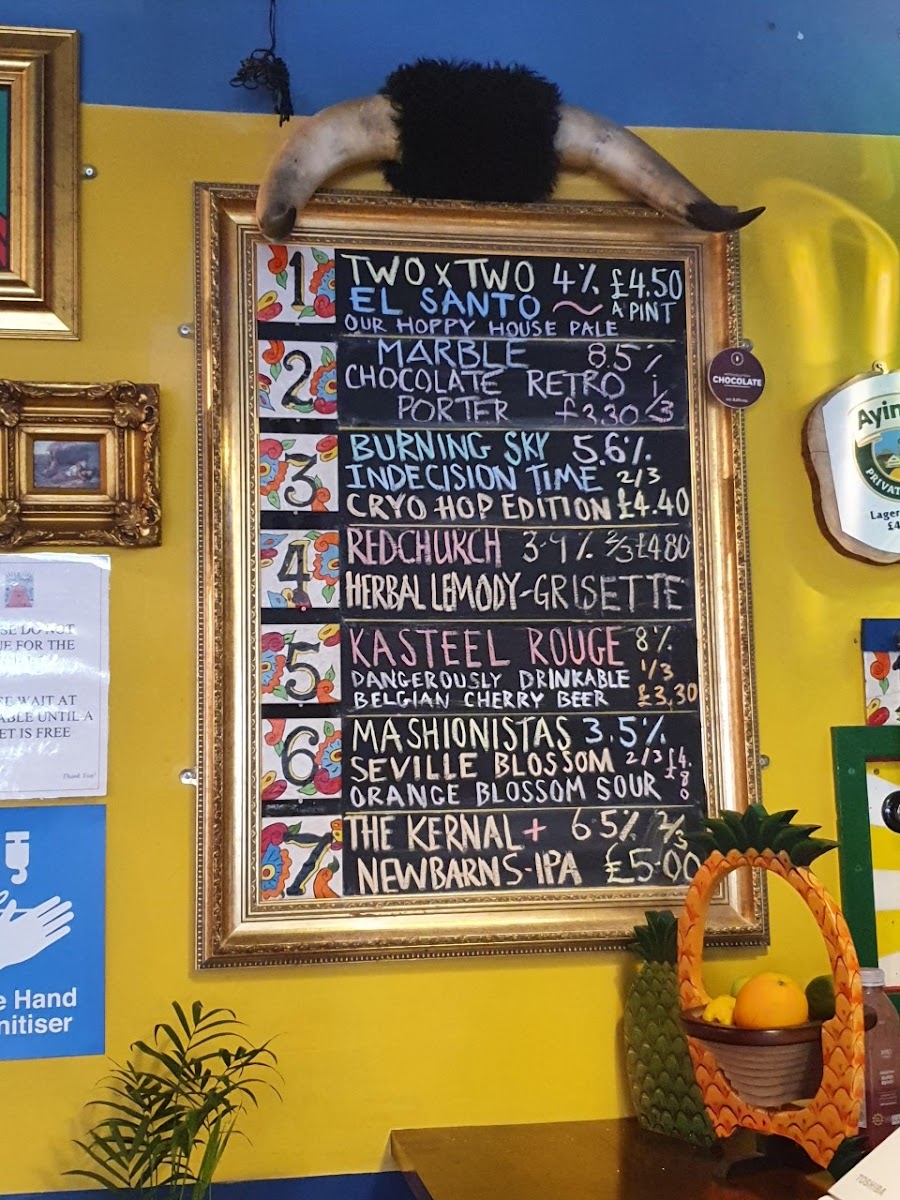 1 TWO X TWO 4% £4.50
EL SANTO ~ A PINT
OUR HOPPY HOUSE PALE
2 MARBLE 8.5%
CHOCOLATE RETRO
PORTER £3.30 1/3
CHOCOLATE
3 BURNING SKY 5.6%
INDECISION TIME 2/3
CRYO HOP EDITION £4.40
4 REDCHURCH 3.9% 2/3 £4.80
HERBAL LEMODY-GRISETTE
5 KASTEEL ROUGE 8%
DANGEROUSLY DRINKABLE 1/3
BELGIAN CHERRY BEER £3.30
6 MASHIONISTAS 3.5%
SEVILLE BLOSSOM 2/3 £4.80
ORANGE BLOSSOM SOUR
7 THE KERNAL + 6.5% 2/3
NEWBARNS-IPA £5.00
Ayin
PRIVAT
Lager
£4
SE DO NOT
UE FOR THE
SE WAIT AT
ABLE UNTIL A
ET IS FREE
Thank You!
e Hand
nitiser
TOSHIBA